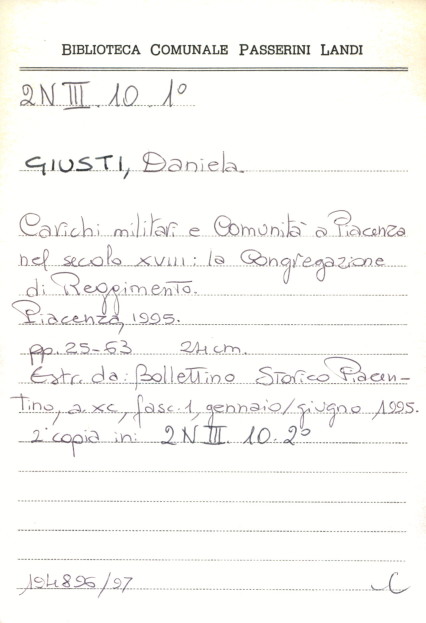 BIBLIOTECA COMUNALE PASSERINI LANDI
2N III. 10. 1°
GIUSTI, Daniela.
Carichi militari e Comunità a Piacenza
nel secolo XVIII: la Congregazione
di Reggimento.
Piacenza, 1995.
pp. 25-63 24 cm.
Estr. da: Bollettino Storico Piacen-
tino, a. XC, fasc. 1, gennaio/giugno 1995.
2ª copia in: 2N III. 10. 2°
194896/97